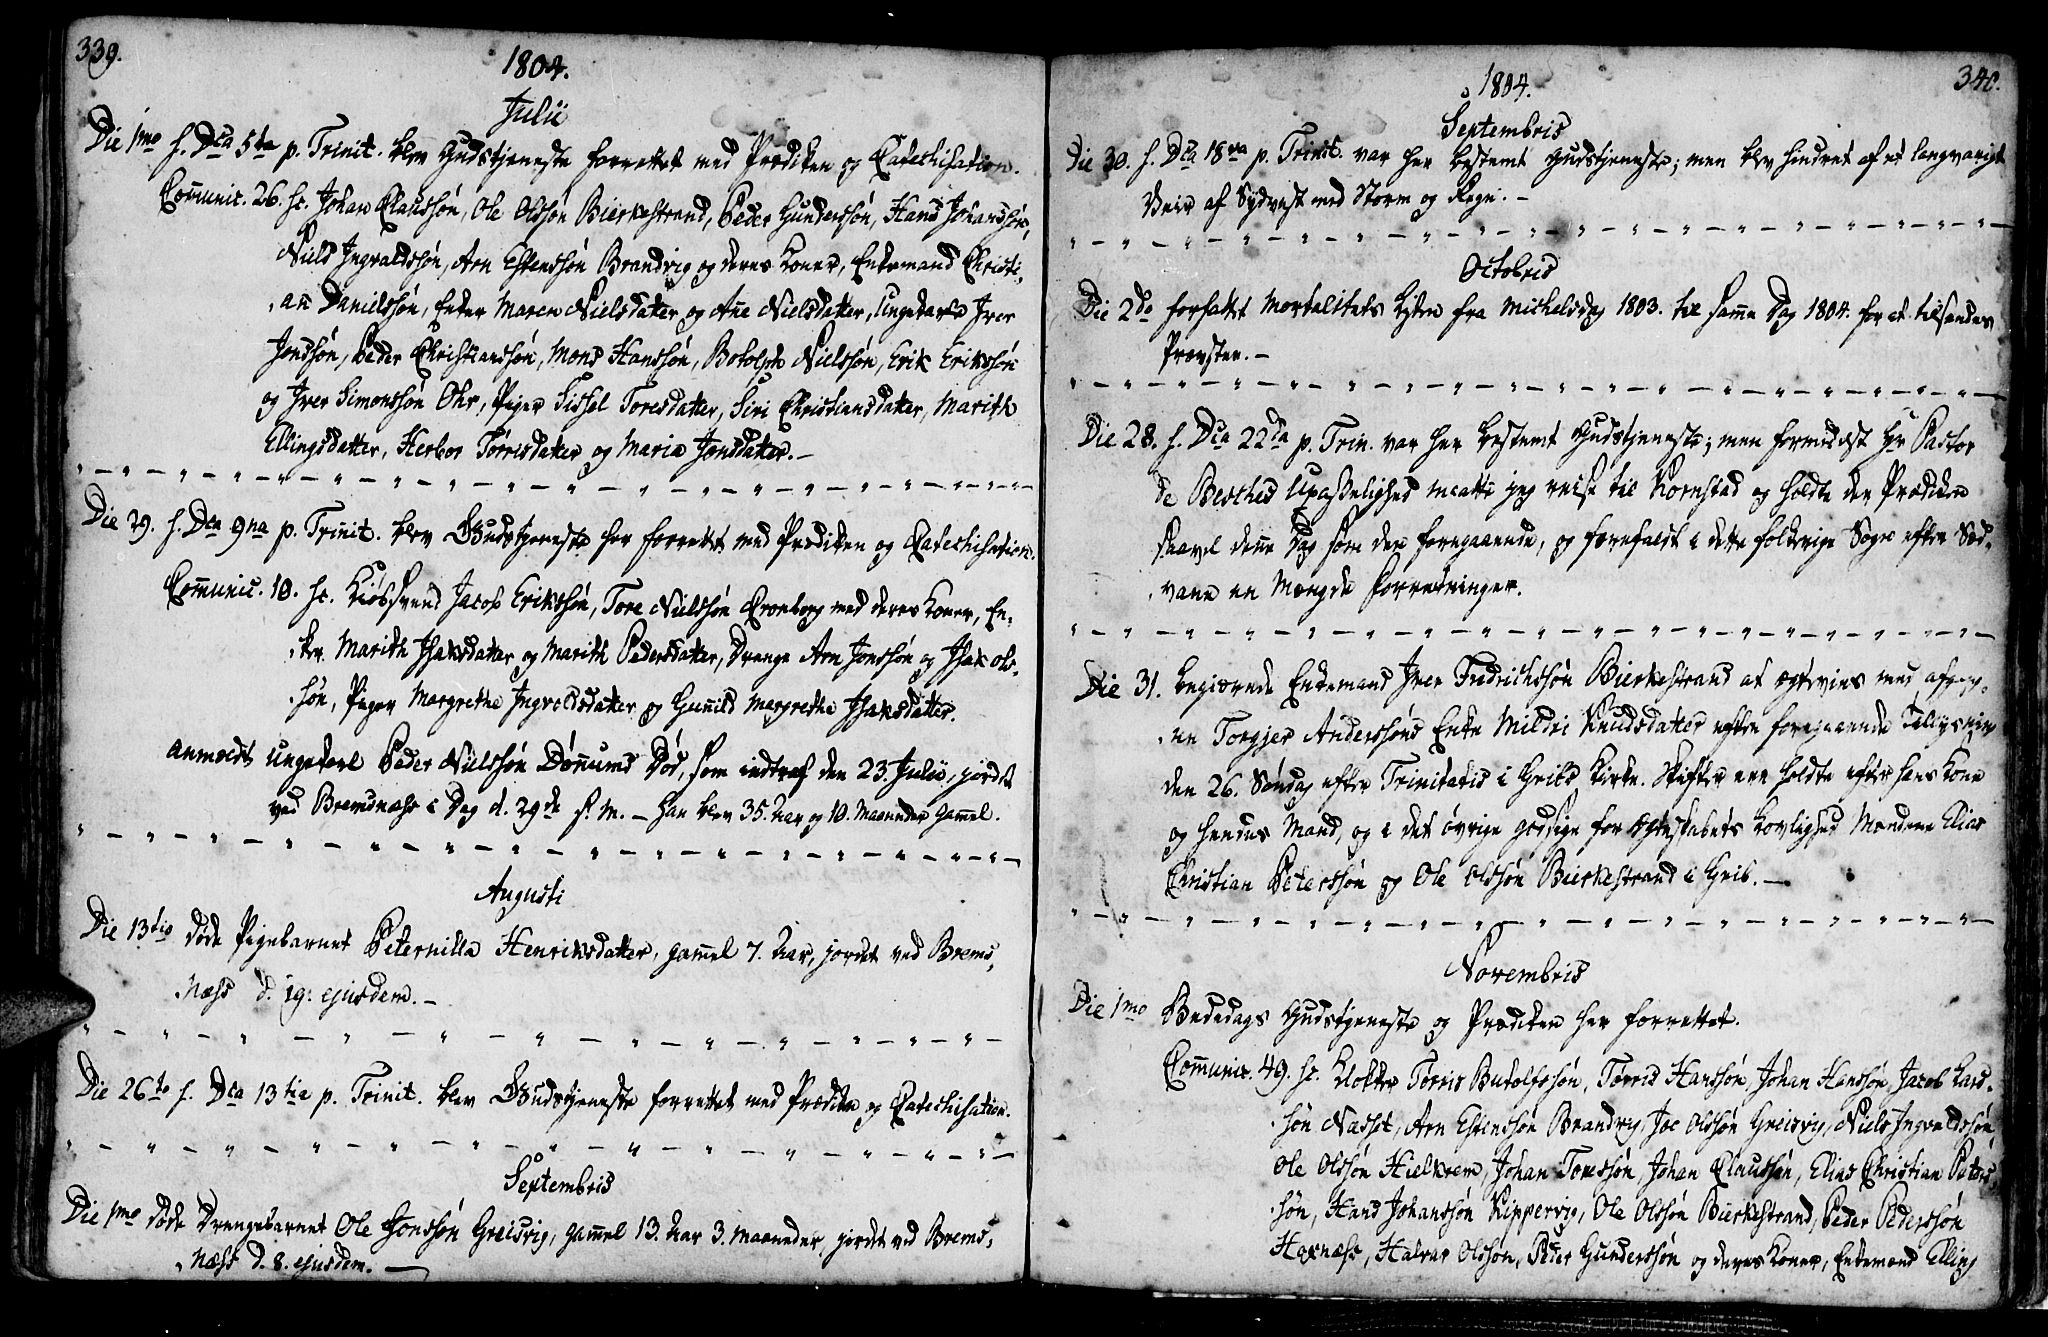 339.
1804.
Julii
Die 1mo f. Dca 5ta p. Trinit. blev Gudstjeneste forrettet med Prædiken og Catechisation.
Com̄unic. 26. sc. Johan Claussøn, Ole Olssøn Bierkestrand, Peder Gunderssøn, Hans Johanssøn,
Niels Ingvaldssøn, Arn Estenssøn Brandvig og deres Koner, Enkemand Christi-
an Danielssøn, Enker Maren Nielsdatter og An̄e Nielsdatter, Ungekarle Iver
Jonssøn, Peder Christianssøn, Mons Hanssøn, Botolph Nielssøn, Erik Erikssøn
og Iver Simonssøn Ohr, Piger Sissel Toresdatter, Siri Christiansdatter, Marith
Ellingsdatter, Herbor Tørrisdatter og Maria Jonsdatter.
Die 29. f. Dca 9na p. Trinit. blev Gudstjeneste her forrettet med Prædiken og Catechisation.
Com̄unic. 10. sc. Kiøbsvend Jacob Erikssøn, Tore Nielssøn Cronborg med deres Koner, En-
ker Marith Isaksdatter og Marith Pedersdatter, Drenge Arn Jonssøn og Isak Ols-
søn, Piger Margrethe Ingvoldsdatter og Gunild Margrethe Isaksdatter.
Anmeldt Ungekarl Peder Nielssøn Døn̄ums Død, som indtraf den 23. Julii, jordet
ved Bremsnæss i Dag d. 29de h. M. - han blev 35. Aar og 10. Maaneder gam̄el.
Augusti
Die 13tio døde Pigebarnet Peternilla Henriksdatter, gam̄el 7. Aar, jordet ved Brems-
Næss d. 19. ejusdem. -
Die 26to f. Dca 13tia p. Trinit. blev Gudstjeneste forrettet med Prædiken og Catechisation.
Septembris
Die 1mo døde Drengebarnet Ole Jonssøn Greisvig, gam̄el 13. Aar 3. Maaneder, jordet ved Brems-
Næss d. 8. ejusdem.
340.
1804.
Septembris
Die 30. f. Dca 18va p. Trinit. var her bestemt Gudstjeneste; men blev hindret af et langvarigt
Veir af Sydvest med Storm og Regn. -
Octobris
Die 2do forfattet Mortalitets Listen fra Michelsdag 1803. til sam̄e Dag 1804. for at tilsendes
Provsten. -
Die 28. f. Dca 22da p. Trin. var her bestemt Gudstjeneste; men formedelst Hr Pastor
de Besches Upasselighed maatte jeg reise til Kornstad og holdte der Prædiken
saavel den̄e Dag som den foregaaende, og forefaldt i dette folkrige Sogn efter Sæd-
vane en Mængde Forretninger.
Die 31. begiærede Enkemand Iver Fredrichssøn Bierkestrand at ægtevies med afgag-
ne Torgjer Anderssøns Enke Mildri Knudsdatter efter foregaaende Tillysning
den 26. Søndag efter Trinitatis i Grips Kirke. Skifter ere holdte efter hans Kone
og hendes Mand, og i det øvrige godsige for Ægteskabets Lovlighed Mændene Elias
Christian Peterssøn og Ole Olssøn Bierkestrand i Grib. -
Novembris
Die 1mo Bededags Gudstjeneste og Prædiken her forrettet.
Com̄unic. 49. sc. Klokker Tørris Butolfssøn, Tørris Hanssøn, Johan Hanssøn, Jacob Lars-
søn Næsset, Arn Estenssøn Brandvig, Joc Olssøn Greisvig, Niels Ingvaldssøn
Ole Olssøn Hielkrem, Johan Toressøn, Johan Claussøn, Elias Christian Peters-
søn, Hans Johanssøn Kippervig, Ole Olssøn Bierkestrand, Peder Pederssøn
Haxnæss, Halvar Olssøn, Peder Gunderssøn og deres Koner, Enkemænd Elling